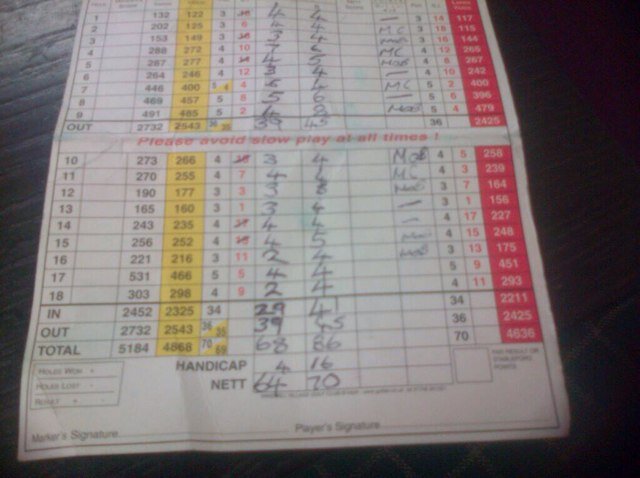 1 132 122 3 4 4 — 3 14 117
2 202 125 3 4 4 MC 3 18 115
3 153 149 3 3 4 MOB 3 16 144
4 288 272 4 10 7 6 MC 4 12 265
5 287 277 4 4 5 MOB 4 6 267
6 264 246 4 12 3 4 — 4 10 242
7 446 400 5 4 MC 5 2 400
8 469 457 5 8 5 6 — 5 6 396
9 491 485 5 2 MOB 5 4 479
OUT 2732 2543 36 35 39 45 36 2425
Please avoid slow play at all times !
10 273 266 4 3 4 MOB 4 5 258
11 270 255 4 7 4 MC 4 3 239
12 190 177 3 3 3 8 MOB 3 7 164
13 165 160 3 1 3 4 — 3 1 156
14 243 235 4 4 4 — 4 17 227
15 256 252 4 4 5 4 15 248
16 221 216 3 11 2 4 MOB 3 13 175
17 531 466 5 5 4 4 5 9 451
18 303 298 4 9 2 4 4 11 293
IN 2452 2325 34 29 41 34 2211
OUT 2732 2543 36 35 39 45 36 2425
TOTAL 5184 4868 70 69 68 86 70 4636
HANDICAP 4 16
NETT 64 70
HOLES WON +
HOLES LOST -
RESULT + -
PAR RESULT OR STABLEFORD POINTS
Marker's Signature
Player's Signature